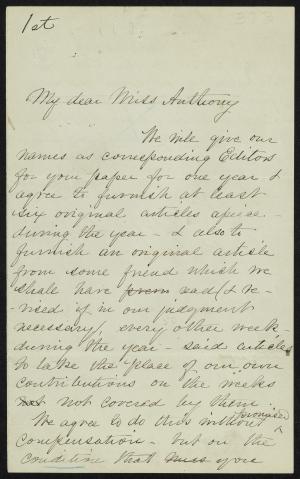 1st
My dear Miss Anthony
We will give our
names as corresponding Editors
for your paper for one year &
agree to furnish at least
six original articles apiece -
during the year - & also to
furnish an original article
from some friend which we
shall have read (& re-
-vised if in our judgment
necessary), every other week -
during the year - said articles
to take the place of our own
contributions on the weeks
not not covered by them.
We agree to do this without promised
compensation - but on the
condition that you